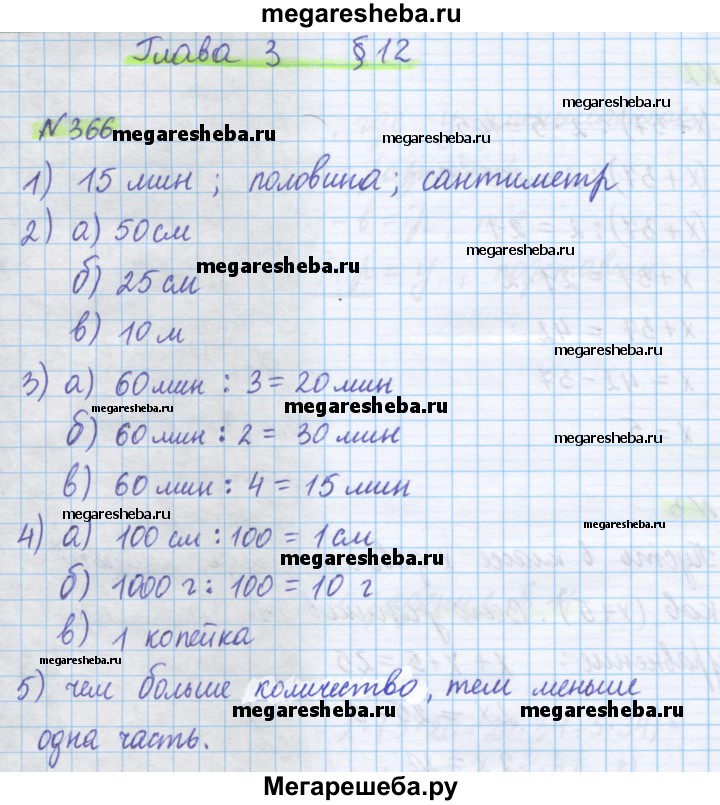 megaresheba.ru
Глава 3 § 12
megaresheba.ru
N 366 megaresheba.ru
1) 15 мин ; половина; сантиметр
2) а) 50 см
megaresheba.ru
megaresheba.ru
б) 25 см
в) 10 м
megaresheba.ru
3) а) 60 мин : 3 = 20 мин
megaresheba.ru megaresheba.ru
б) 60 мин : 2 = 30 мин
megaresheba.ru
в) 60 мин : 4 = 15 мин
megaresheba.ru
megaresheba.ru
4) а) 100 см : 100 = 1 см
megaresheba.ru
б) 1000 г : 100 = 10 г
в) 1 копейка
megaresheba.ru
5) чем больше количество, тем меньше
megaresheba.ru megaresheba.ru
одна часть.
Мегарешеба.ру